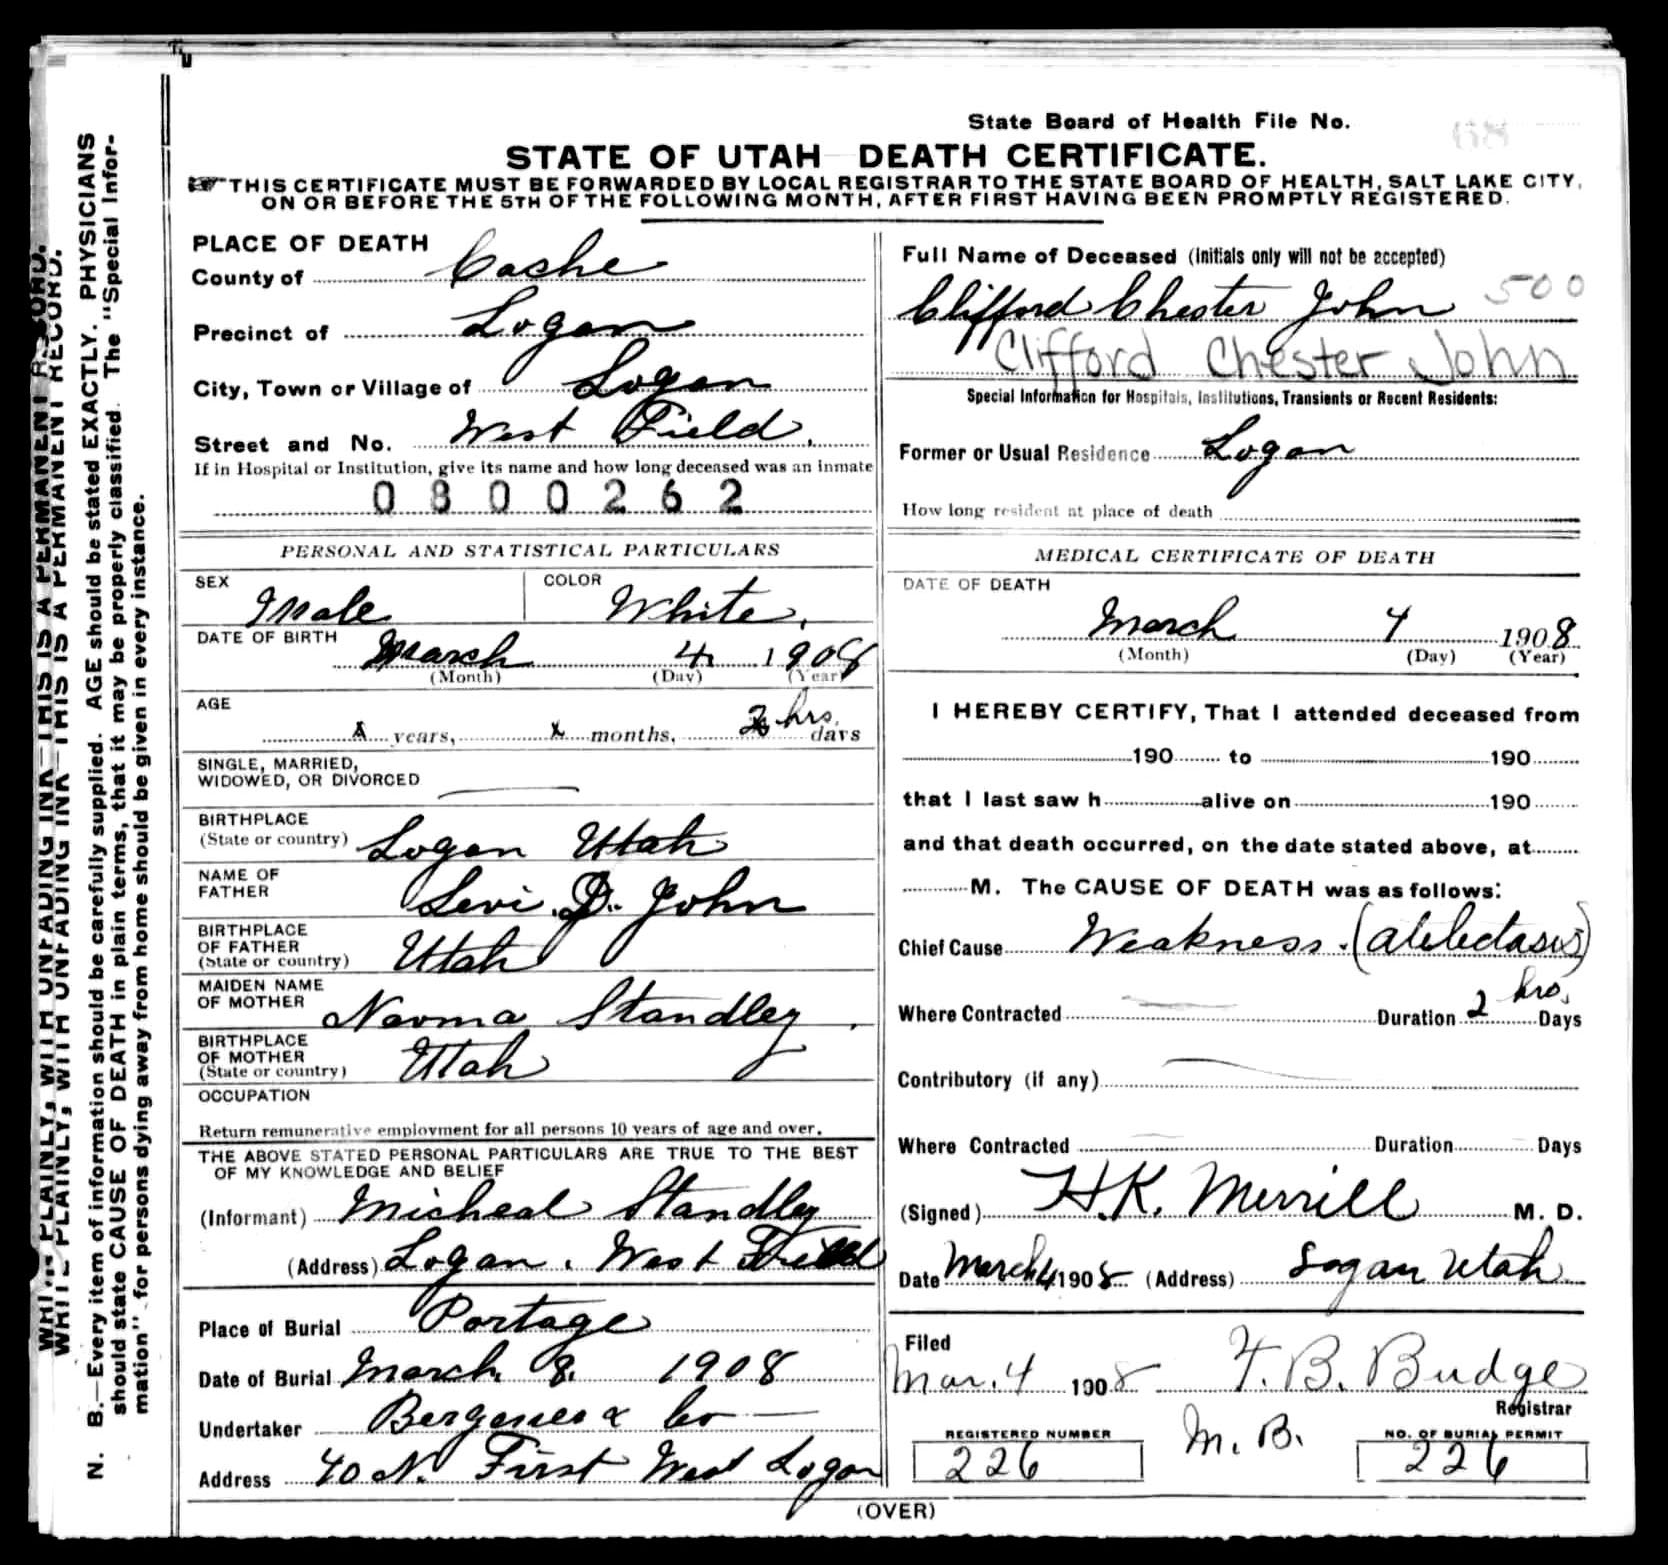 State Board of Health File No. 68
STATE OF UTAH DEATH CERTIFICATE.
THIS CERTIFICATE MUST BE FORWARDED BY LOCAL REGISTRAR TO THE STATE BOARD OF HEALTH, SALT LAKE CITY,
ON OR BEFORE THE 5TH OF THE FOLLOWING MONTH, AFTER FIRST HAVING BEEN PROMPTLY REGISTERED.
WRITE PLAINLY, WITH UNFADING INK—THIS IS A PERMANENT RECORD.
WRITE PLAINLY, WITH UNFADING INK—THIS IS A PERMANENT RECORD.
N. B.—Every item of information should be carefully supplied. AGE should be stated EXACTLY. PHYSICIANS
should state CAUSE OF DEATH in plain terms, that it may be properly classified. The "Special Infor-
mation" for persons dying away from home should be given in every instance.
PLACE OF DEATH
County of Cache
Precinct of Logan
City, Town or Village of Logan
Street and No. West Field.
If in Hospital or Institution, give its name and how long deceased was an inmate
0800262
PERSONAL AND STATISTICAL PARTICULARS
SEX Male COLOR White.
DATE OF BIRTH
March 4 1908
(Month) (Day) (Year)
AGE
years, months, 2 hrs. days
SINGLE, MARRIED,
WIDOWED, OR DIVORCED
BIRTHPLACE
(State or country) Logan Utah
NAME OF
FATHER Levi D. John
BIRTHPLACE
OF FATHER
(State or country) Utah
MAIDEN NAME
OF MOTHER Naoma Standley.
BIRTHPLACE
OF MOTHER
(State or country) Utah
OCCUPATION
Return remunerative employment for all persons 10 years of age and over.
THE ABOVE STATED PERSONAL PARTICULARS ARE TRUE TO THE BEST
OF MY KNOWLEDGE AND BELIEF
(Informant) Micheal Standley
(Address) Logan. West Field
Place of Burial Portage
Date of Burial March 8. 1908
Undertaker & Co
Address 40 N. First West Logan
Full Name of Deceased (Initials only will not be accepted)
Clifford Chester John 500
Clifford Chester John
Special Information for Hospitals, Institutions, Transients or Recent Residents:
Former or Usual Residence Logan
How long resident at place of death
MEDICAL CERTIFICATE OF DEATH
DATE OF DEATH
March 4 1908
(Month) (Day) (Year)
I HEREBY CERTIFY, That I attended deceased from
190 to 190
that I last saw h alive on 190
and that death occurred, on the date stated above, at
M. The CAUSE OF DEATH was as follows:
Chief Cause Weakness. (atelectasis)
Where Contracted Duration 2 hrs. Days
Contributory (if any)
Where Contracted Duration Days
(Signed) H.K. Merrill M. D.
Date March 4 1908 (Address) Logan Utah
Filed
Mar. 4 1908 F. B. Budge
Registrar
REGISTERED NUMBER M. B. NO. OF BURIAL PERMIT
226 226
(OVER)